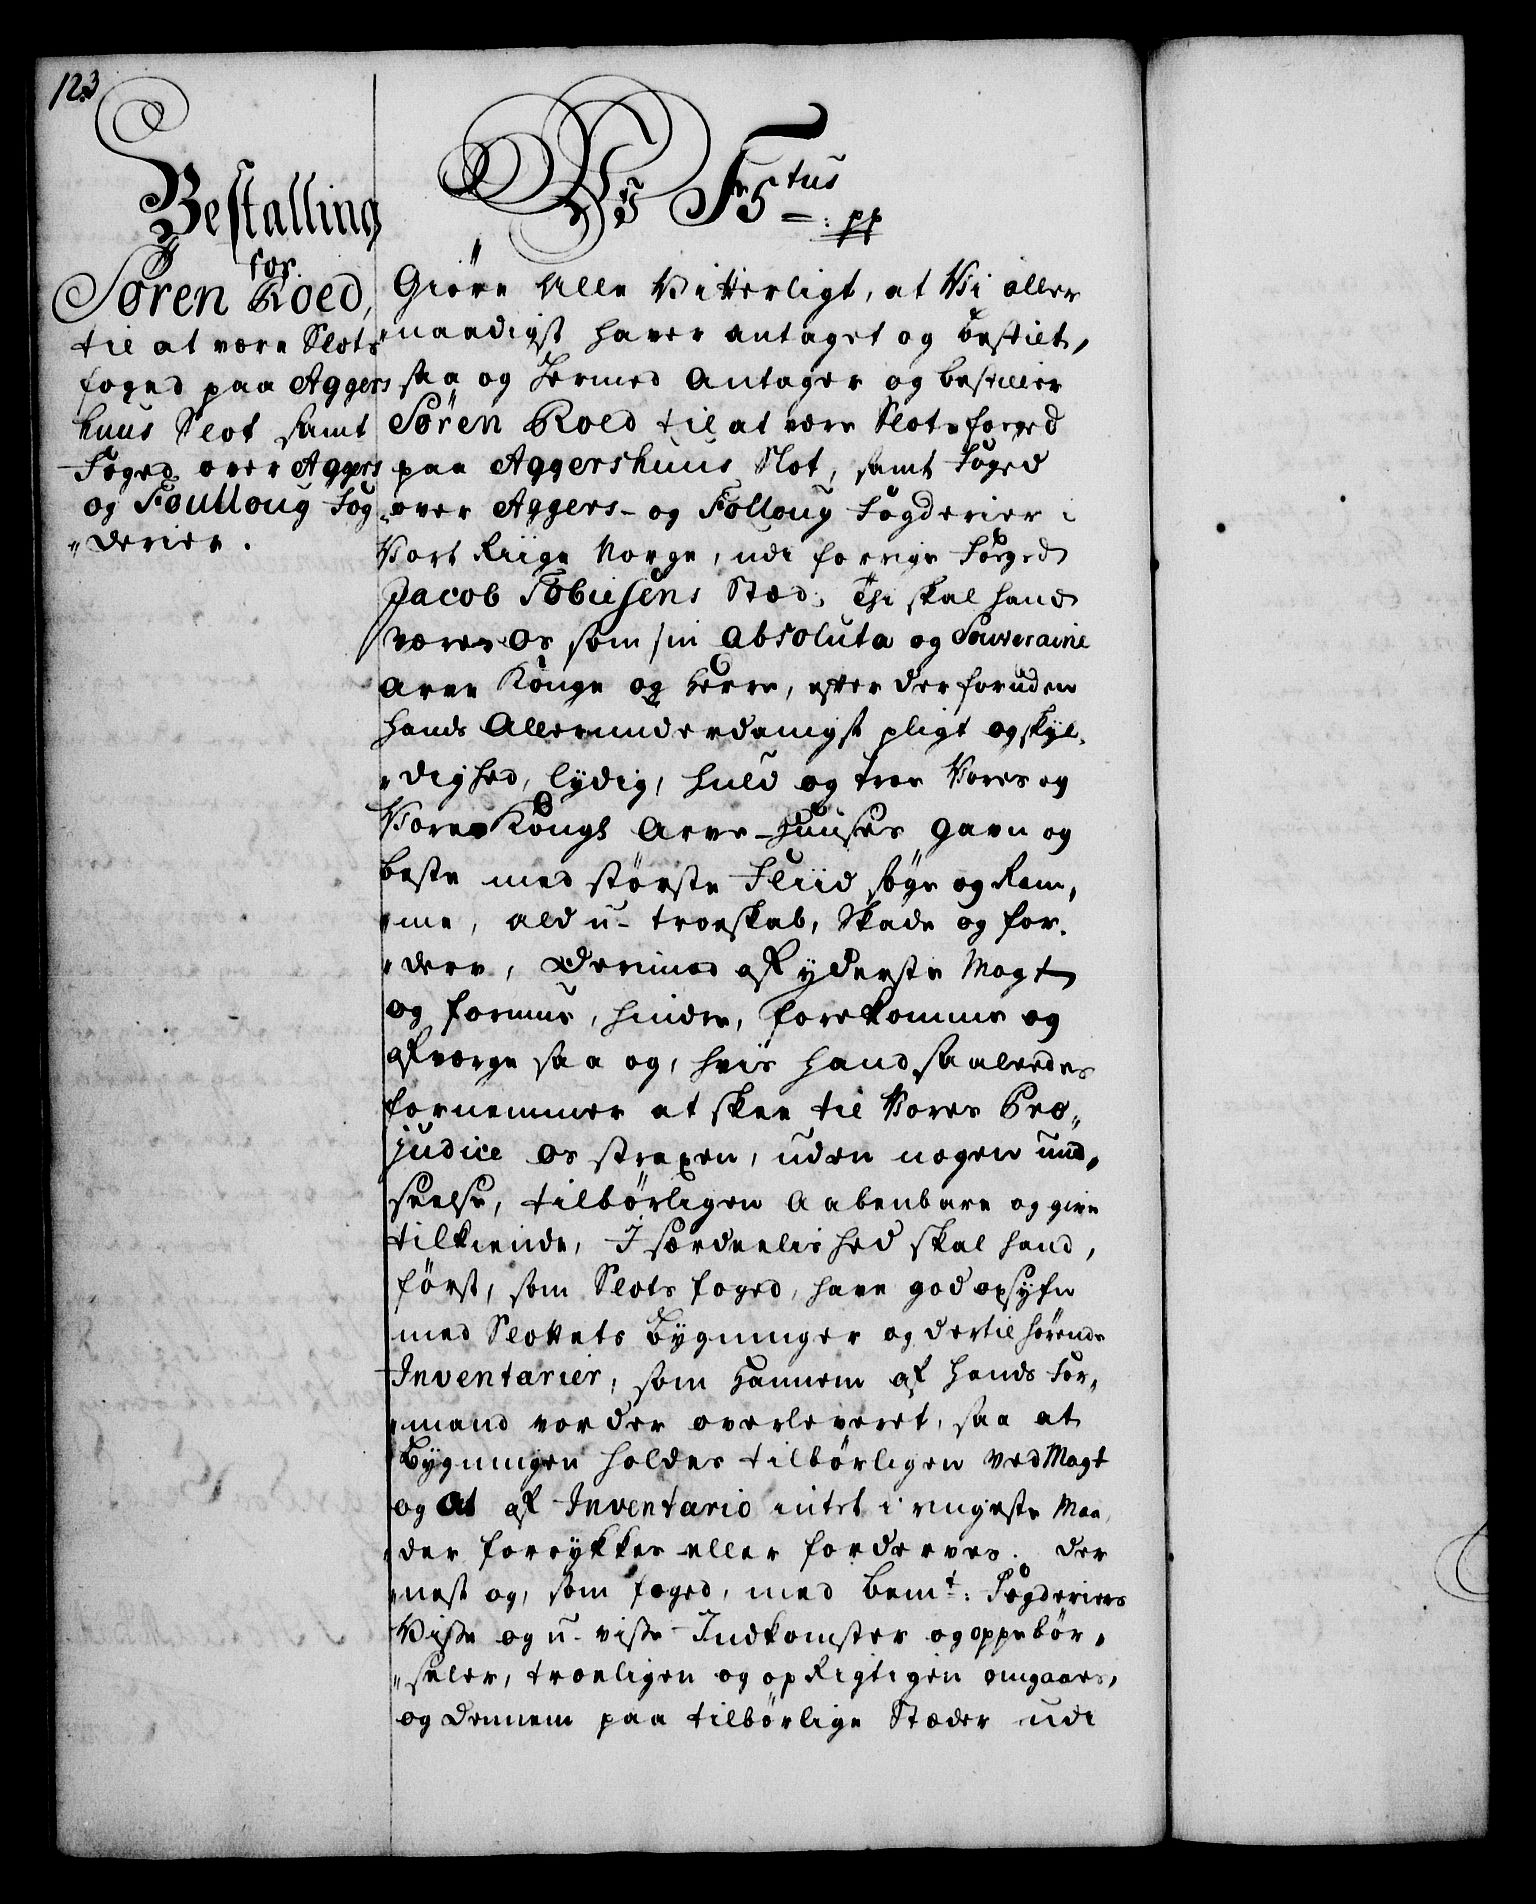 123
Bestalling
for
Søren Roed,
til at være Slots
foged paa Aggers
huus Slot samt
Foged over Aggers
og Foulloug Fog
"derier.
Vi F5tus =: pp
Giøre Alle Vitterligt, at Vi aller
"naadigst haver antaget og bestilt,
saa og Hermed Antager og bestiller
Søren Roed til at være Slotsfoged
paa Aggershuus Slot, samt Foged
over Aggers- og Folloug Fogderier i
Vort Riige Norge, udi forrige Foged
Jacob Tobiesens Sted; Thi skal hand
være Os som sin Absolute og Souveraine
Arve Konge og Herre, efter der foruden
hands Allerunderdanigst pligt og skyl,
"dighed, lydig, huld og troe Vores og
Vores Kongl Arve-Huuses Gavn og
beste med største Fliid søge og Ram,
"me, ald u-troeskab, Skade og for,
"derv, Derimod af yderste Magt
og formue, hindre, forekomme og
afværge saa og, hvis hand saaleedes
fornemmer at skee til Vores Præ,,
judice Os strapen, uden nogen und,
seelse, tilbørligen Aabenbare og give
tilkiende, I særdeelished skal hand,
først, som Slots foged, have god opsyn
med Slottets Bygninger og dertil hørende
Inventarier, som Hannem af hands For,
"mand vorder overleveret, saa at
Bygningen holdes tilbørligen ved Magt
og at af Inventario intet i ringeste Maa,
"der forrykkes eller forderves. Der
"nest og, som foged, med bemt: Fogderiers
Visse og u-visse Indkomster og oppebør,
"seler, troeligen og opRigtigen omgaaes,
og dennem paa tilbørlige Stæder udi